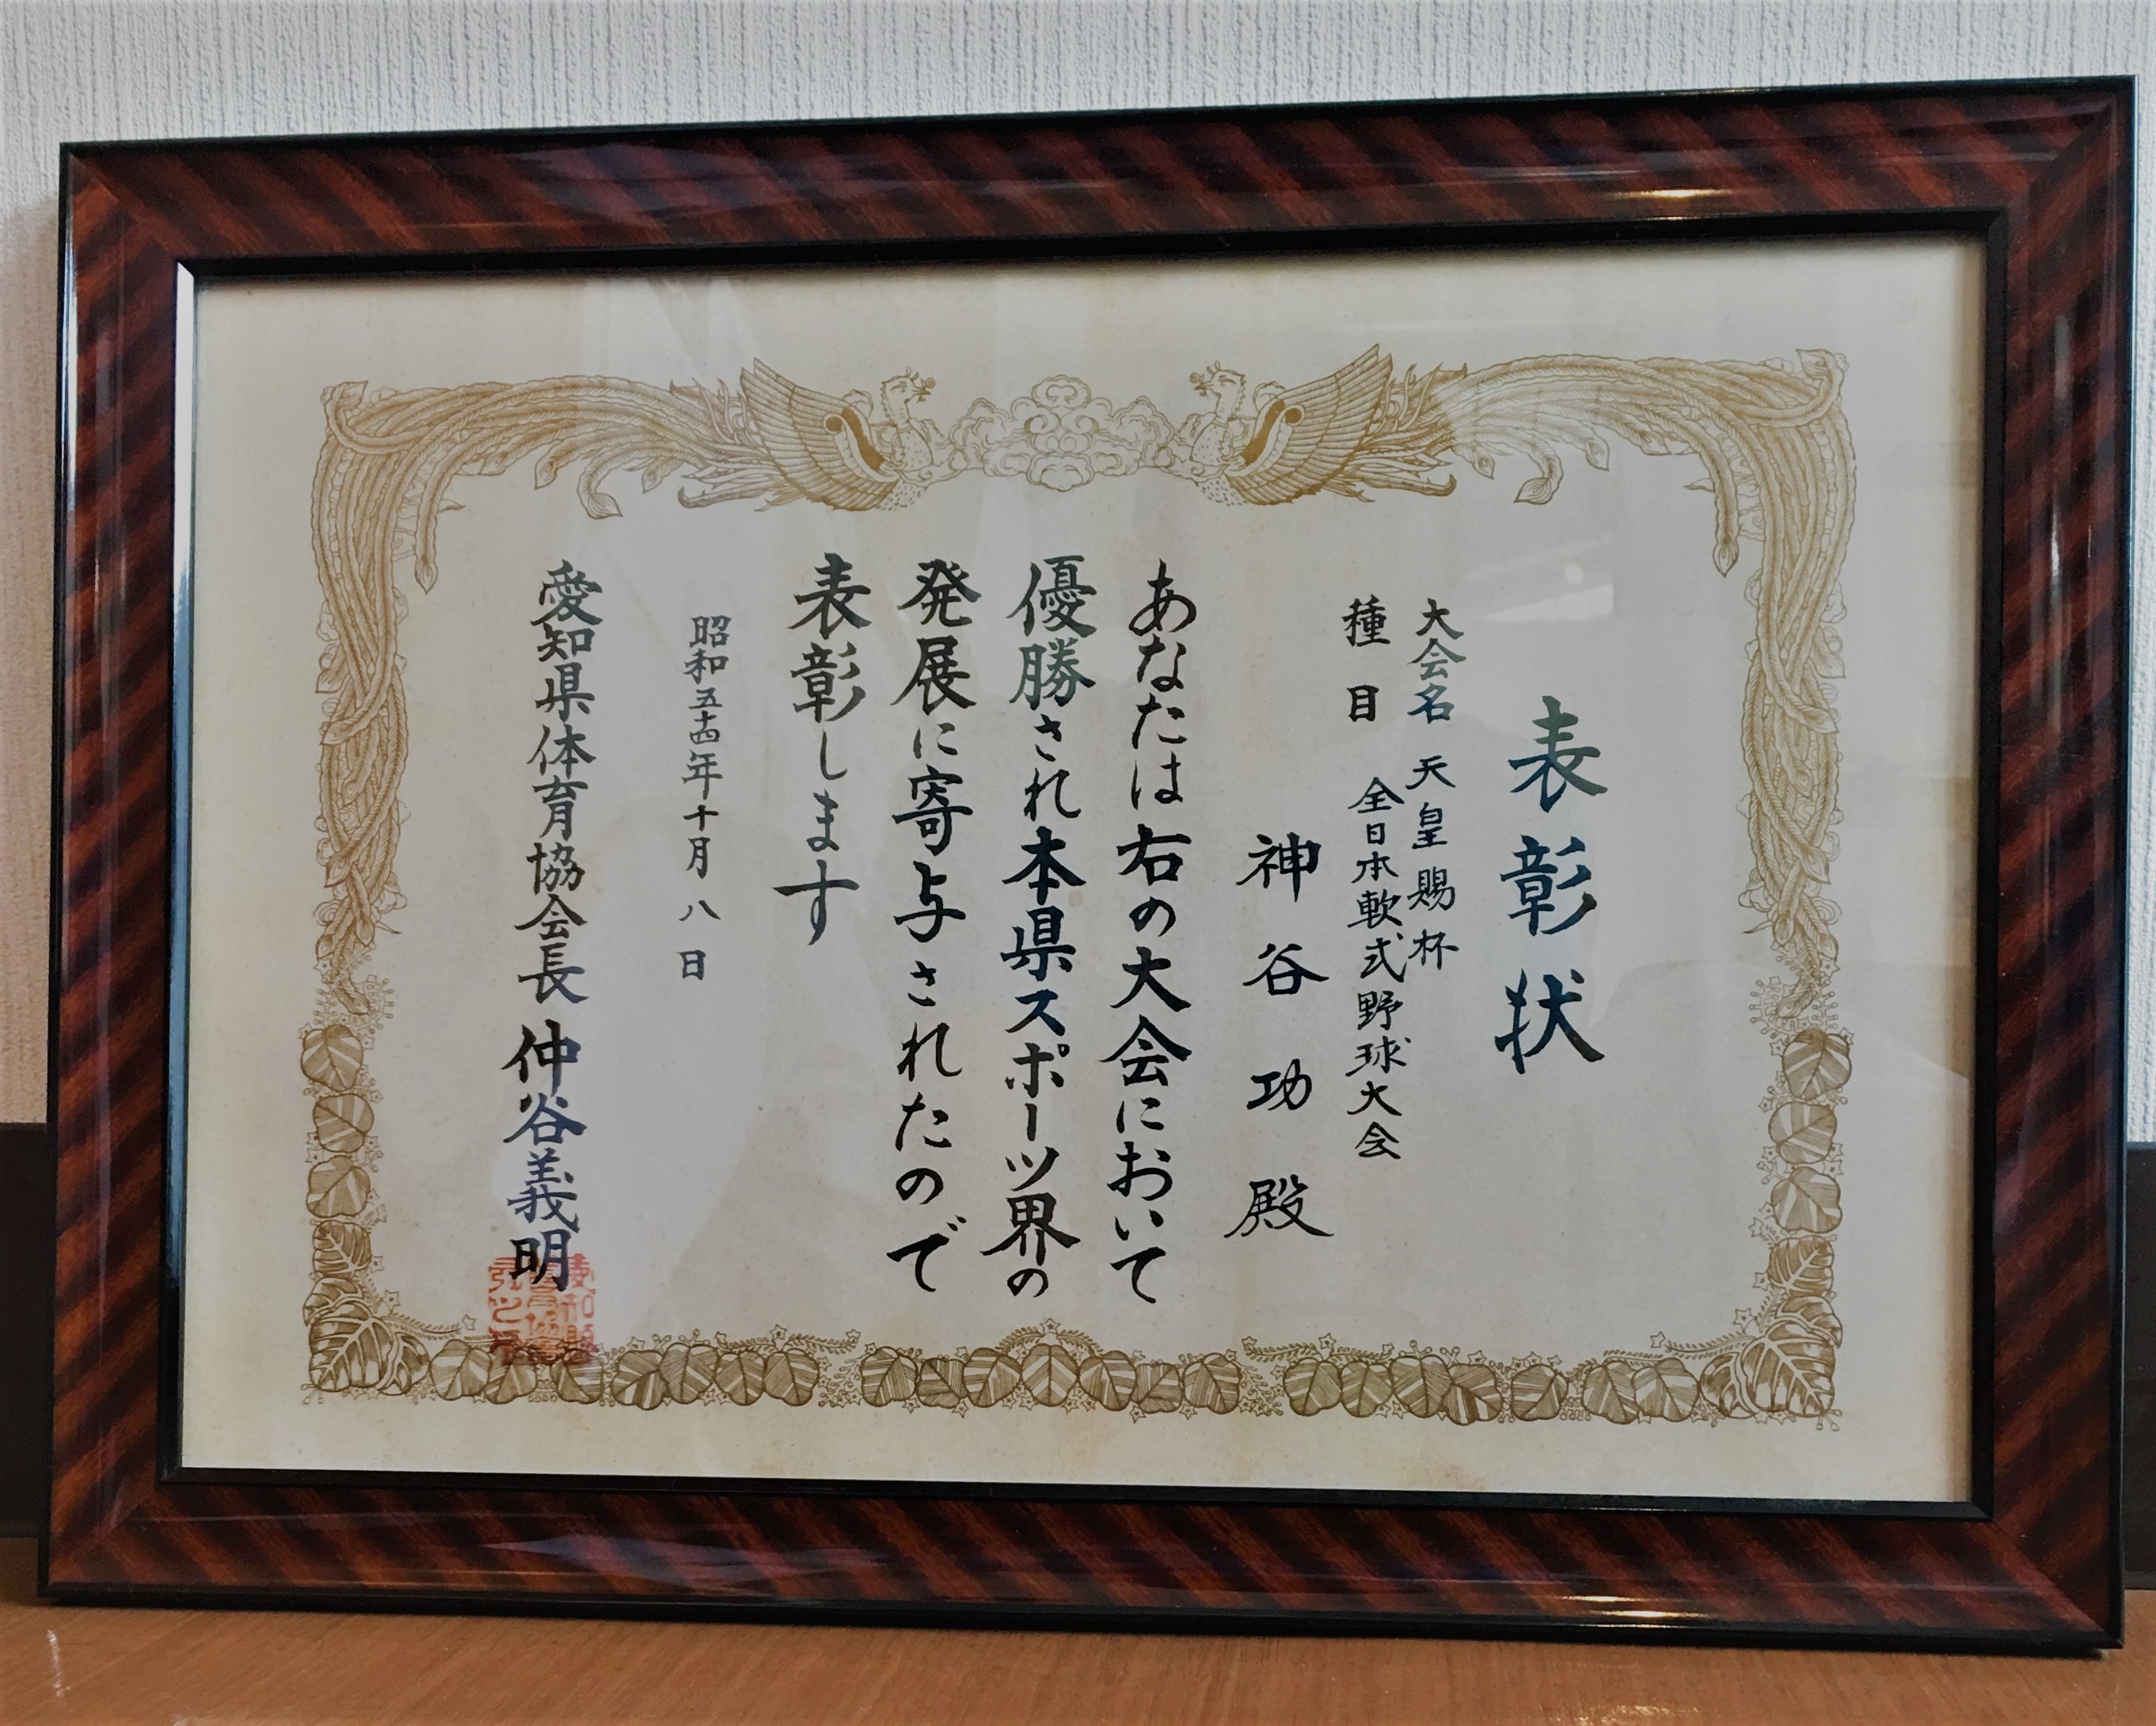 表彰状
大会名 天皇賜杯
種目 全日本軟式野球大会
神谷功殿
あなたは右の大会において
優勝され本県スポーツ界の
発展に寄与されたので
表彰します
昭和五十四年十月八日
愛知県体育協会長 仲谷義明